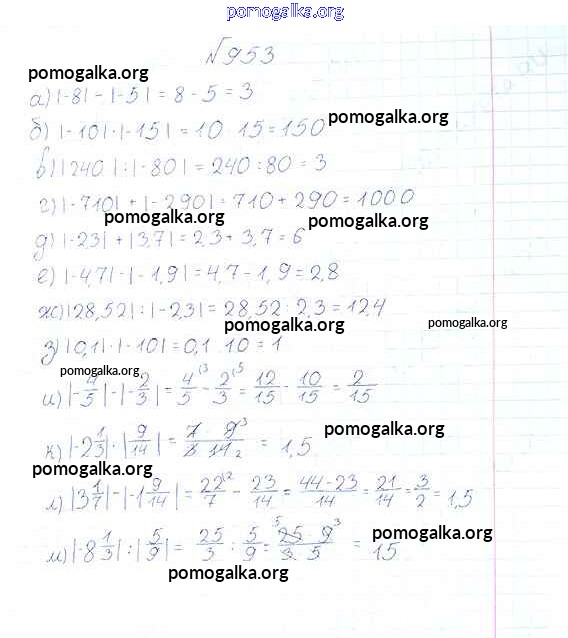 pomogalka.org
№953
pomogalka.org
а) |-8| - |-5| = 8 - 5 = 3
б) |-10| · |-15| = 10 · 15 = 150
pomogalka.org
в) |240| : |-80| = 240 : 80 = 3
г) |-710| + |-290| = 710 + 290 = 1000
pomogalka.org
pomogalka.org
д) |-2,3| + |3,7| = 2,3 + 3,7 = 6
е) |-4,7| - |-1,9| = 4,7 - 1,9 = 2,8
ж) |28,52| : |-2,3| = 28,52 : 2,3 = 12,4
pomogalka.org
pomogalka.org
з) |0,1| · |-10| = 0,1 · 10 = 1
pomogalka.org
и) |-4/5| - |-2/3| = 4/5 (3 - 2/3 (5 = 12/15 - 10/15 = 2/15
pomogalka.org
к) |-2 1/3| · |9/14| = 7 · 9 3/3 · 14 2 = 1,5
pomogalka.org
л) |3 1/7| - |-1 9/14| = 22/7 (2 - 23/14 = 44-23/14 = 21/14 = 3/2 = 1,5
pomogalka.org
м) |-8 1/3| : |5/9| = 25/3 : 5/9 = 5 25 · 9 3/3 · 5 = 15
pomogalka.org